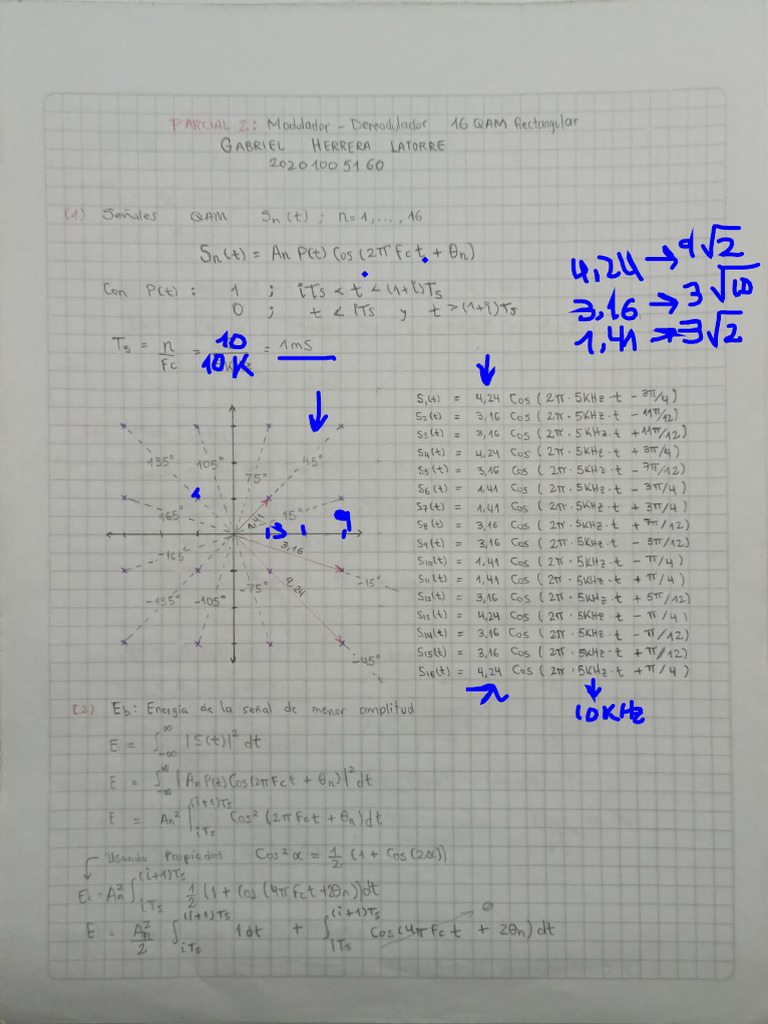 PARCIAL 2: Modulador - Demodulador 16 QAM Rectangular
GABRIEL HERRERA LATORRE
20201005160
(1) Señales QAM Sn(t) ; n=1,...,16
Sn(t) = An P(t) Cos (2π Fc t + θn)
4,24 → 9√2
3,16 → 3√10
1,41 → 3√2
Con P(t) : 1 ; iTs < t < (1+i)Ts
0 ; t < iTs y t > (1+i)Ts
Ts = n/Fc = 10/10K = 1ms
S1(t) = 4,24 Cos ( 2π · 5KHz · t - 3π/4 )
S2(t) = 3,16 Cos ( 2π · 5KHz · t - 11π/12 )
S3(t) = 3,16 Cos ( 2π · 5KHz · t + 11π/12 )
S4(t) = 4,24 Cos ( 2π · 5KHz · t + 3π/4 )
S5(t) = 3,16 Cos ( 2π · 5KHz · t - 7π/12 )
S6(t) = 1,41 Cos ( 2π · 5KHz · t - 3π/4 )
S7(t) = 1,41 Cos ( 2π · 5KHz · t + 3π/4 )
S8(t) = 3,16 Cos ( 2π · 5KHz · t + 7π/12 )
S9(t) = 3,16 Cos ( 2π · 5KHz · t - 5π/12 )
S10(t) = 1,41 Cos ( 2π · 5KHz · t - π/4 )
S11(t) = 1,41 Cos ( 2π · 5KHz · t + π/4 )
S12(t) = 3,16 Cos ( 2π · 5KHz · t + 5π/12 )
S13(t) = 4,24 Cos ( 2π · 5KHz · t - π/4 )
S14(t) = 3,16 Cos ( 2π · 5KHz · t - π/12 )
S15(t) = 3,16 Cos ( 2π · 5KHz · t + π/12 )
S16(t) = 4,24 Cos ( 2π · 5KHz · t + π/4 )
10KHz
135° 105° 75° 45°
165° 1,41 15°
3 9
-165° 3,16 -15°
-135° -105° -75° 4,24
-45°
(2) Eb: Energía de la señal de menor amplitud
E = ∫_-∞^∞ |S(t)|² dt
E = ∫_-∞^∞ |An P(t) Cos(2π Fc t + θn)|² dt
E = An² ∫_iTs^(i+1)Ts Cos² (2π Fc t + θn) dt
Usando Propiedad Cos² α = 1/2 (1 + Cos(2α))
Ei = An² ∫_iTs^(i+1)Ts 1/2 (1 + Cos (4π Fc t + 2θn)) dt
E = An²/2 ∫_iTs^(i+1)Ts 1 dt + ∫_iTs^(i+1)Ts Cos (4π Fc t + 2θn) dt 0